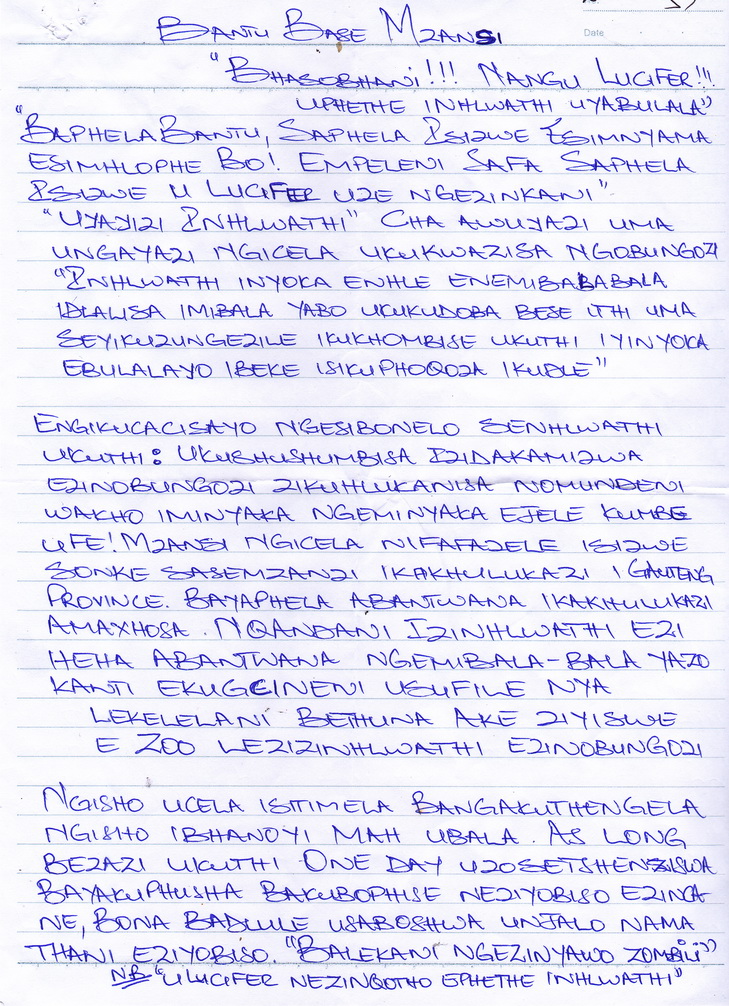 Date
BANTU BASE MZANSI
"BHASOBHANI!!! NANGU LUCIFER!!!
UPHETHE INHLWATHI UYABULALA"
"BAPHELA BANTU, SAPHELA ISIZWE ESIMNYAMA
ESIMHLOPHE BO! EMPELENI SAFA SAPHELA
ISIZWE U LUCIFER UZE NGEZINKANI"
"UYAYIZI INHLWATHI" CHA AWUYAZI UMA
UNGAYAZI NGICELA UKUKWAZISA NGOBUNGOZI
"INHLWATHI INYOKA ENHLE ENEMIBALABALA
IDLALISA IMIBALA YABO UKUKUDOBA BESE ITHI UMA
SEYIKUZUNGEZILE IKUKHOMBISE UKUTHI IYINYOKA
EBULALAYO IBEKE ISIKUPHOQOZA IKUDLE"
ENGIKUCACISAYO NGESIBONELO SENHLWATHI
UKUTHI: UKUSHUSHUMBISA IZIDAKAMIZWA
EZINOBUNGOZI ZIKUHLUKANISA NOMUNDENI
WAKHO IMINYAKA NGEMINYAKA EJELE KUMBE
UFE! MZANSI NGICELA NIFAFAZELE ISIZWE
SONKE SASEMZANZI IKAKHULUKAZI I GAUTENG
PROVINCE. BAYAPHELA ABANTWANA IKAKHULUKAZI
AMAXHOSA. NQANDANI IZINHLWATHI EZI
HEHA ABANTWANA NGEMIBALA-BALA YAZO
KANTI EKUGCINENI USUFILE NYA
LEKELELANI BETHUNA AKE ZIYISWE
E ZOO LEZIZINHLWATHI EZINOBUNGOZI
NGISHO UCELA ISITIMELA BANGAKUTHENGELA
NGISHO IBHANOYI MAH UBALA. AS LONG
BEZAZI UKUTHI ONE DAY UZOSETSHENZISWA
BAYAKUPHUSHA BAKUBOPHISE NEZIYOBISO EZINCA-
NE, BONA BADLULE USABOSHWA UNJALO NAMA
THANI EZIYOBISO. "BALEKANI NGEZINYAWO ZOMBILI"
NB "ULUCIFER NEZINQOTHO EPHETHE INHLWATHI"